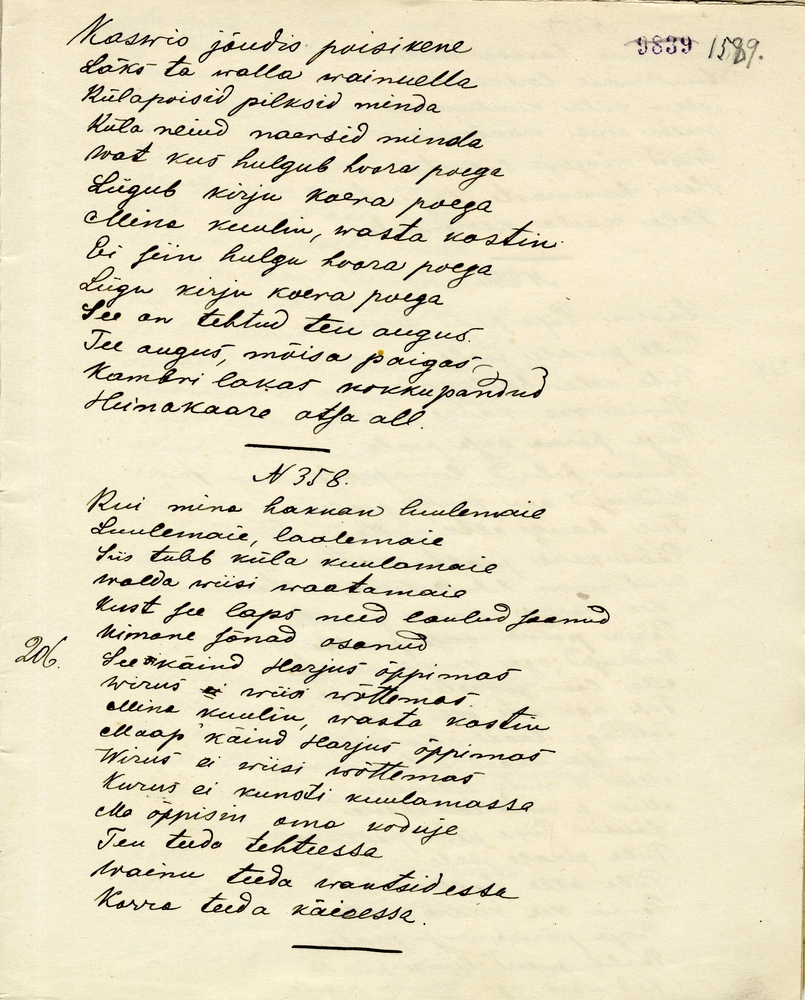 9839 1589.
Kaswis jõudis poisikene
Läks ta walla wainuella
Külapoisid pilksid minda
Küla neiud naersid minda
Wat kus hulgub hoora poega
Liigub kirju koera poega
Mina kuulin, wasta kostin.
Ei siin hulgu hoora poega
Liigu kirju koera poega
See on tehtud teu augus.
Teu augus, mõisa paigas,
Kambri lakas kokkupandud
Heinakaare otsa all.
N 358.
Kui mina hakkan luulemaie
Luulemaie, laalemaie
Siis tuleb küla kuulamaie
walda wiisi waatamaie
Kust see laps need laulud saanud
Nimane sõnad osanud
206.
See käind Harjus õppimas
Wirus ei wiisi wõttemas.
Mina kuulin, wasta kostin
Maap käind Harjus õppimas
Wirus ei wiisi wõttemas
Kurus ei kunsti kuulamassa
Ma õppisin oma koduje
Teu teeda tehtessa
Wainu teeda wantsidessa
Karra teeda käiessa.